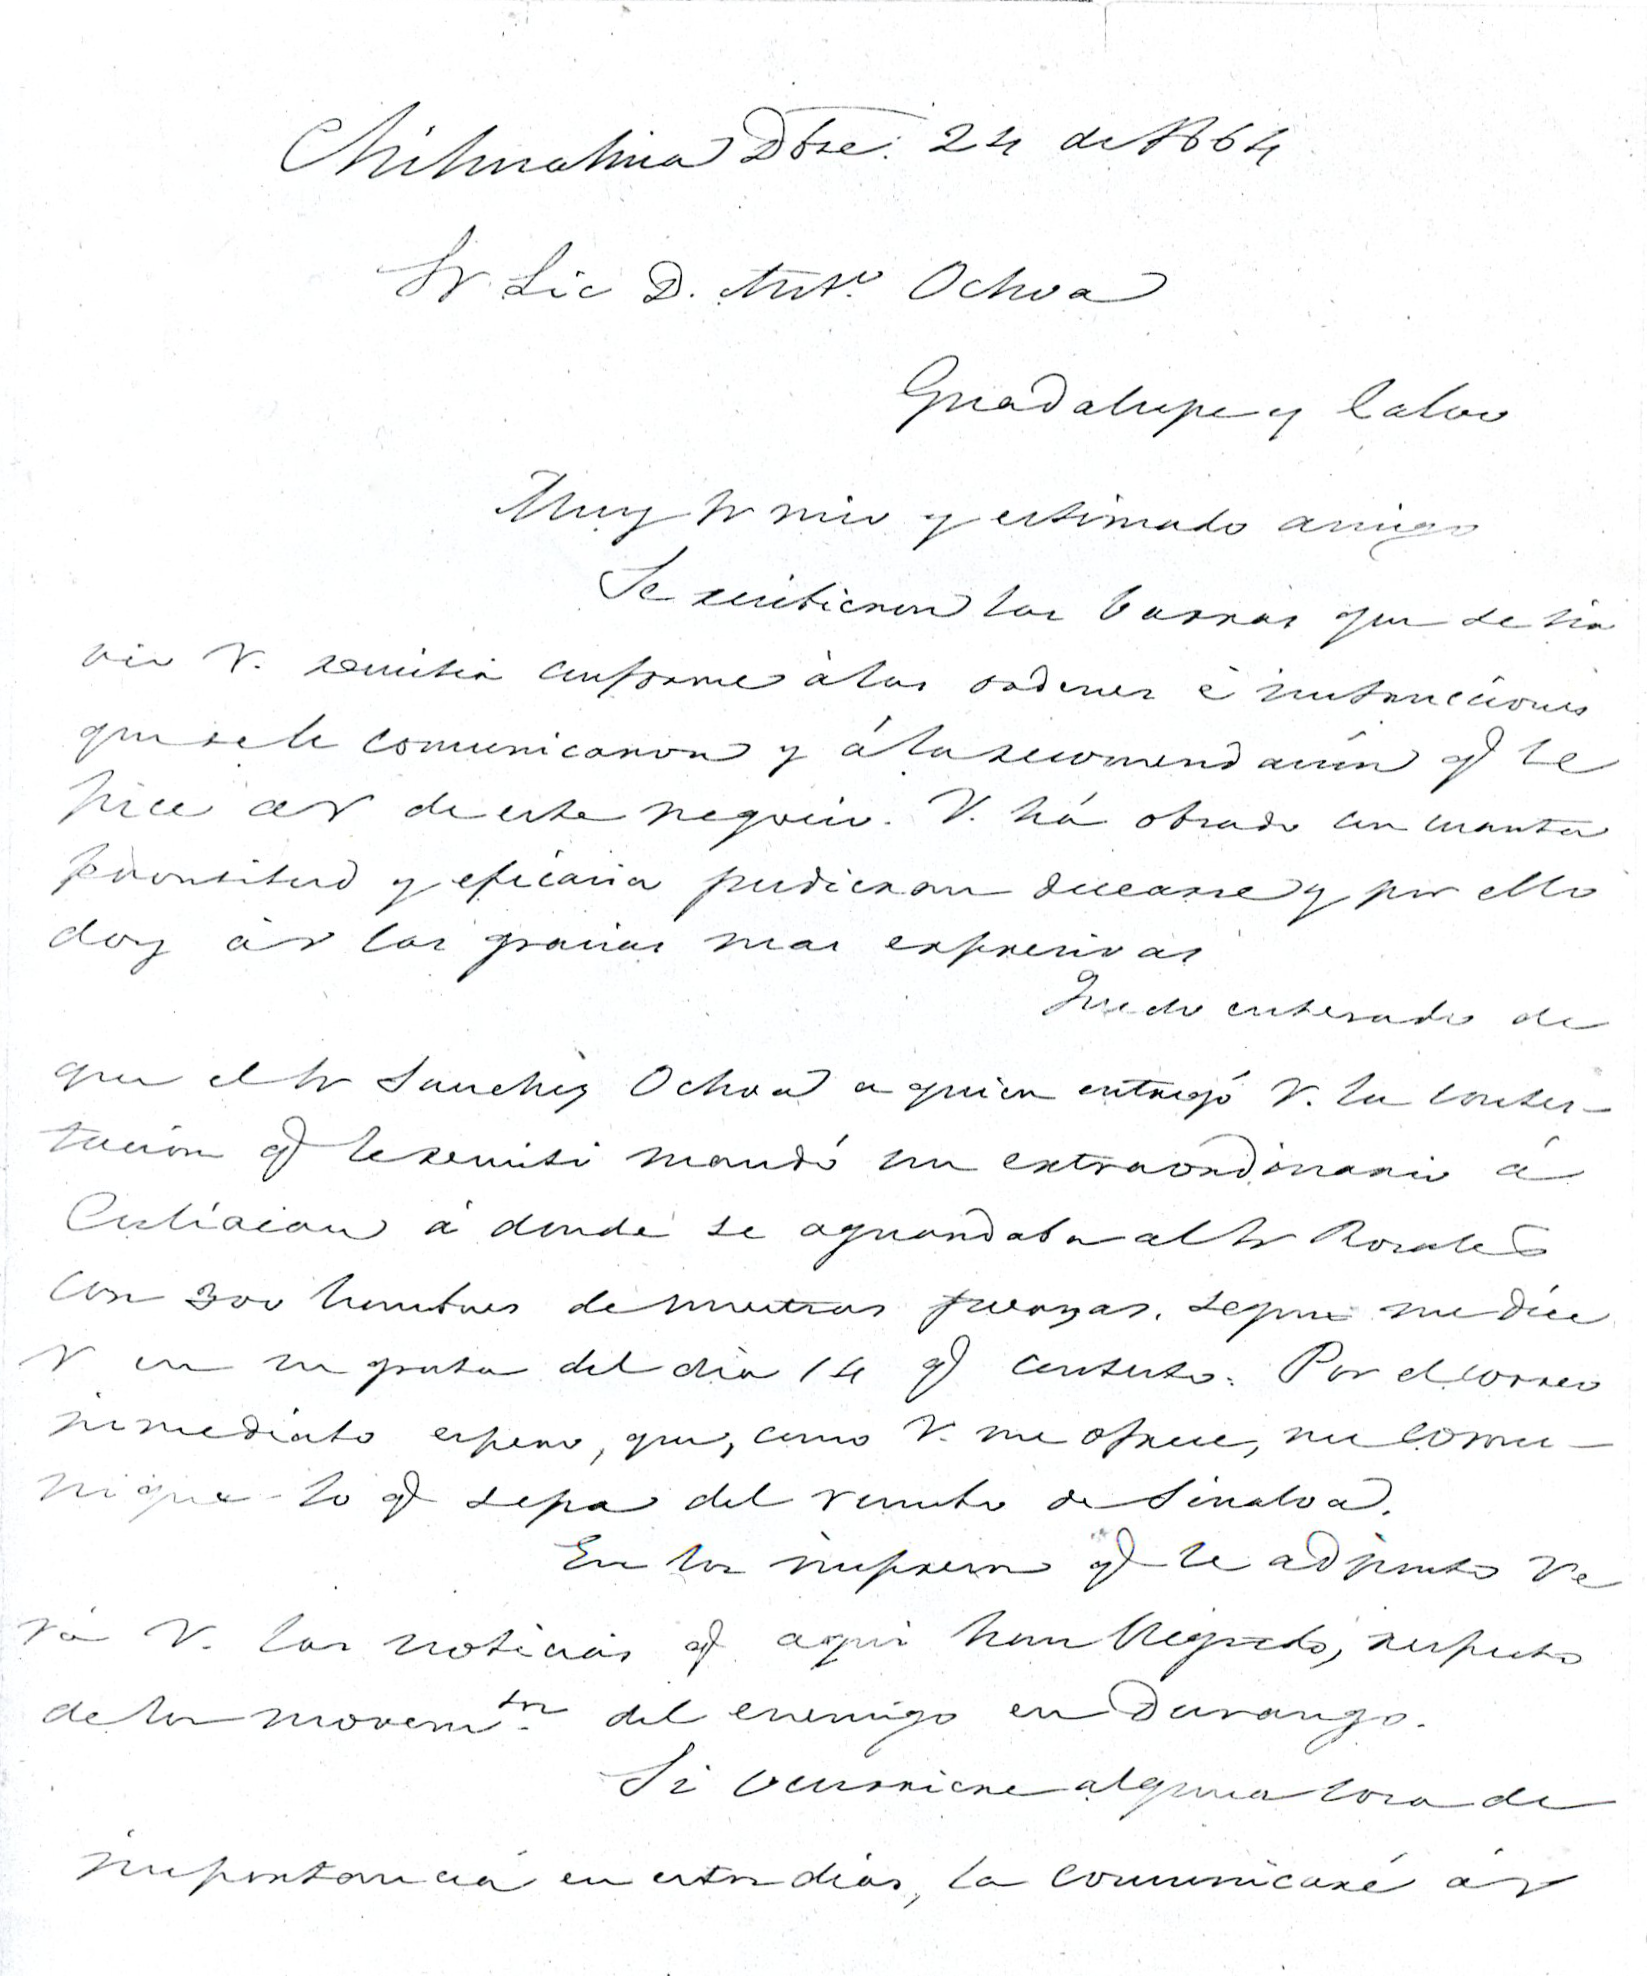 Chihuahua Dbre. 24 de 1864
Sr Lic D. Anto. Ochoa
Guadalupe y Calvo
Muy Sr mio y estimado amigo
Se recibieron las barras que se sir
vió V. remitir conforme á las ordenes é instrucciones
que se le comunicaron y á la recomendación q̃ le
hice á V de este negocio. V. há obrado con cuanta
prontitud y eficacia pudieran decearse y por ello
doy á V las gracias mas expresivas
Quedo enterado de
que el Sr Sanchez Ochoa a quien entregó V. la contes-
tación q̃ le remiti mandó un extraordinario á
Culiacan á donde se aguardaba al Sr Rosales
con 300 hombres de nuestras fuerzas, segun me dice
V en su grata del dia 14 q̃ contesto. Por el correo
inmediato espero, que, como V. me ofrece, me comu-
nique lo q̃ sepa del rumbo de Sinaloa.
En los impresos q̃ le adjunto ve
rá V. las noticias q̃ aqui han llegado, respecto
de los movimtos. del enemigo en Durango.
Si ocurriere alguna cosa de
importancia en estos dias, la comunicaré á V